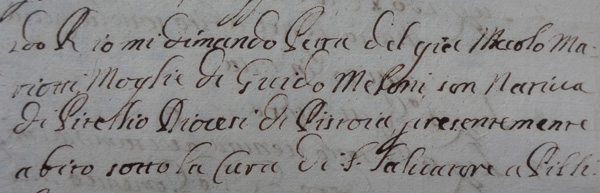 ndo R. io mi dimando Petra del q. Niccolo Ma-
riotti Moglie di Guido Meloni, son Nativa
di Pitellio Diocesi di Pistoia, presentemente
abito sotto la Cura di S. Salvatore a Pilli